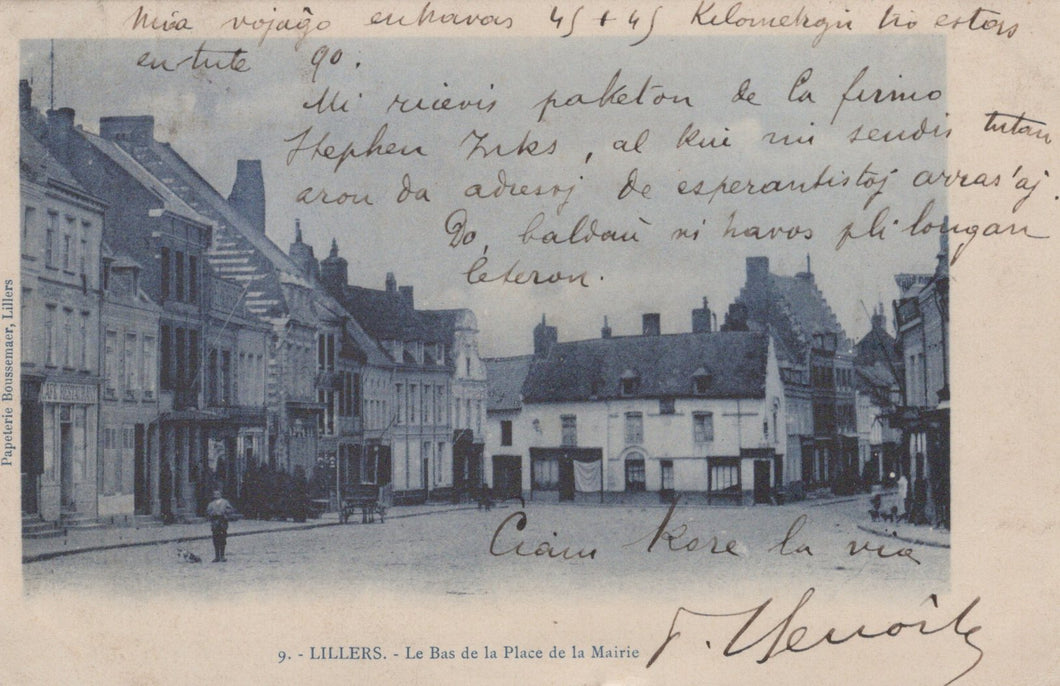 Mia vojaĝo enhavas 45 + 45 Kilometrojn tio estas
en tute 90.
Mi ricevis paketon de la firmo
Stephen Inks, al kiu mi sendis tutan
aron da adresoj de esperantistoj arras'aj.
Do, baldaŭ ni havos pli longan
leteron.
CAFE RESTAURANT
Papeterie Boussemaer, Lillers
Ciam Kore la via
F. Benoît
9. - LILLERS. - Le Bas de la Place de la Mairie